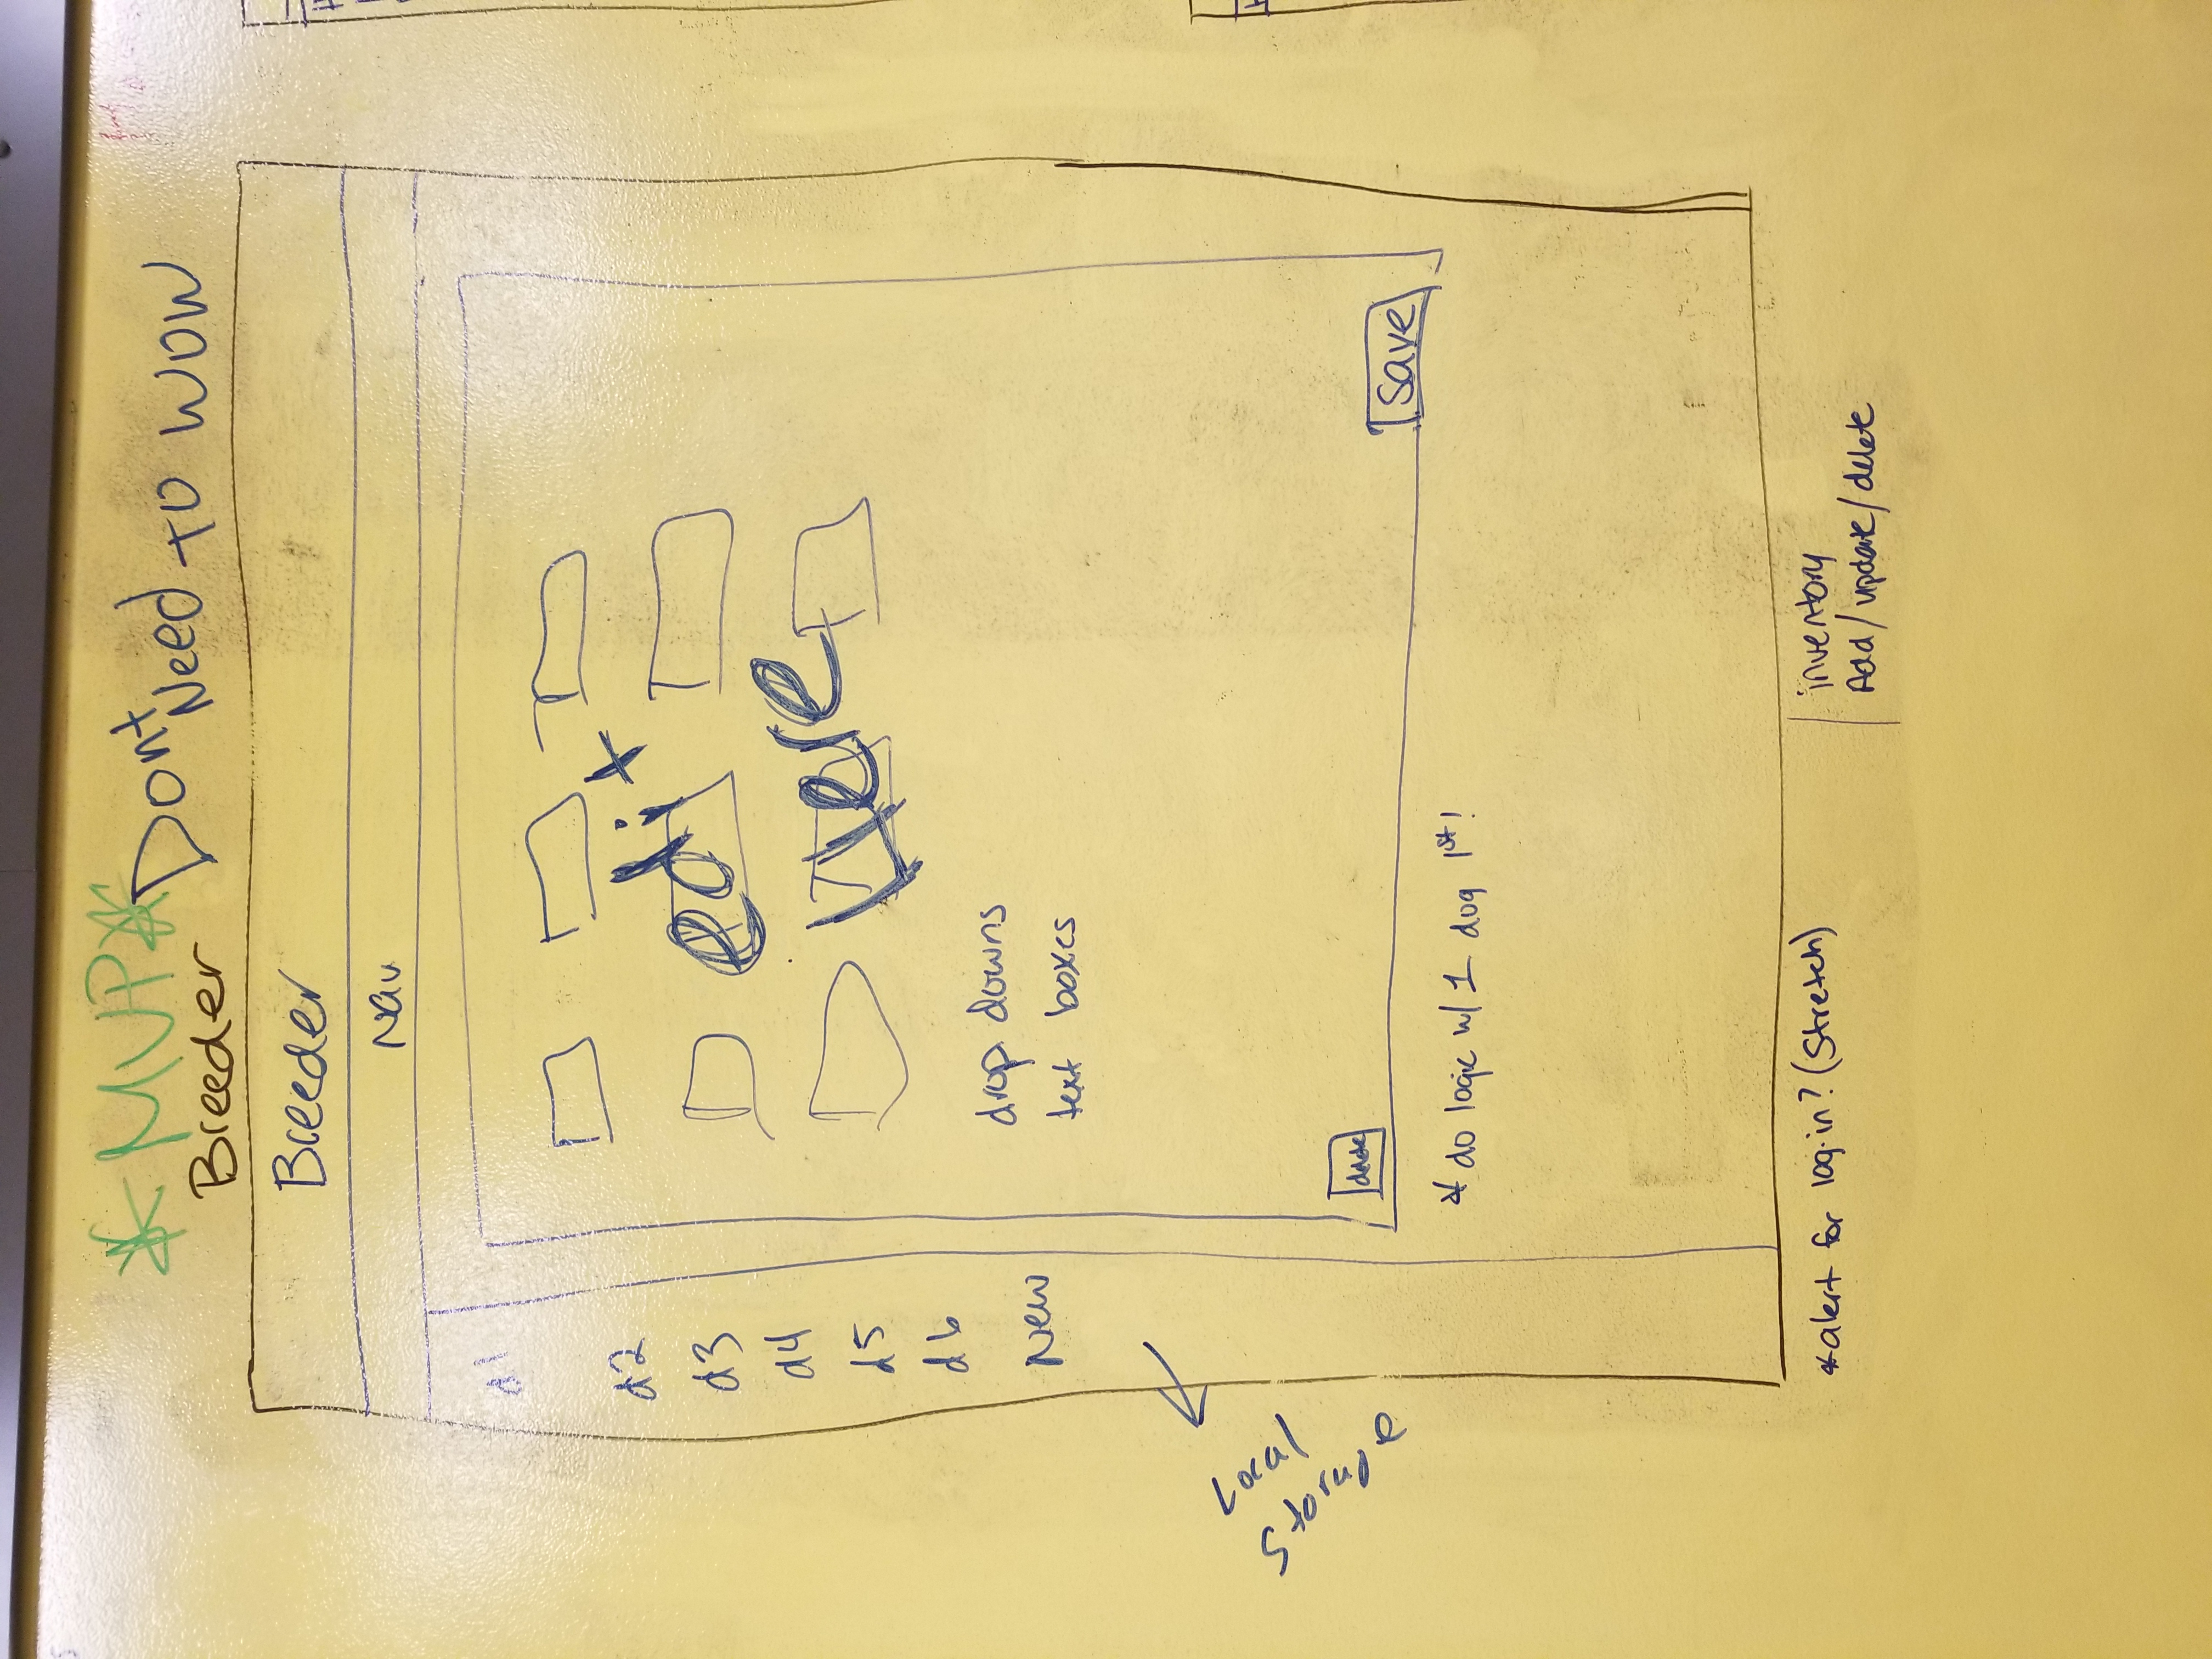 * MVP *
Dont Need to WOW
Breeder
Breeder
Nav
d1
d2
d3
d4
d5
d6
New
edit
Here
drop downs
text boxes
Local
Storage
delete
Save
* do logic w/ 1 dog 1st!
*alert for log-in? (Stretch)
inventory
Add/update/delete